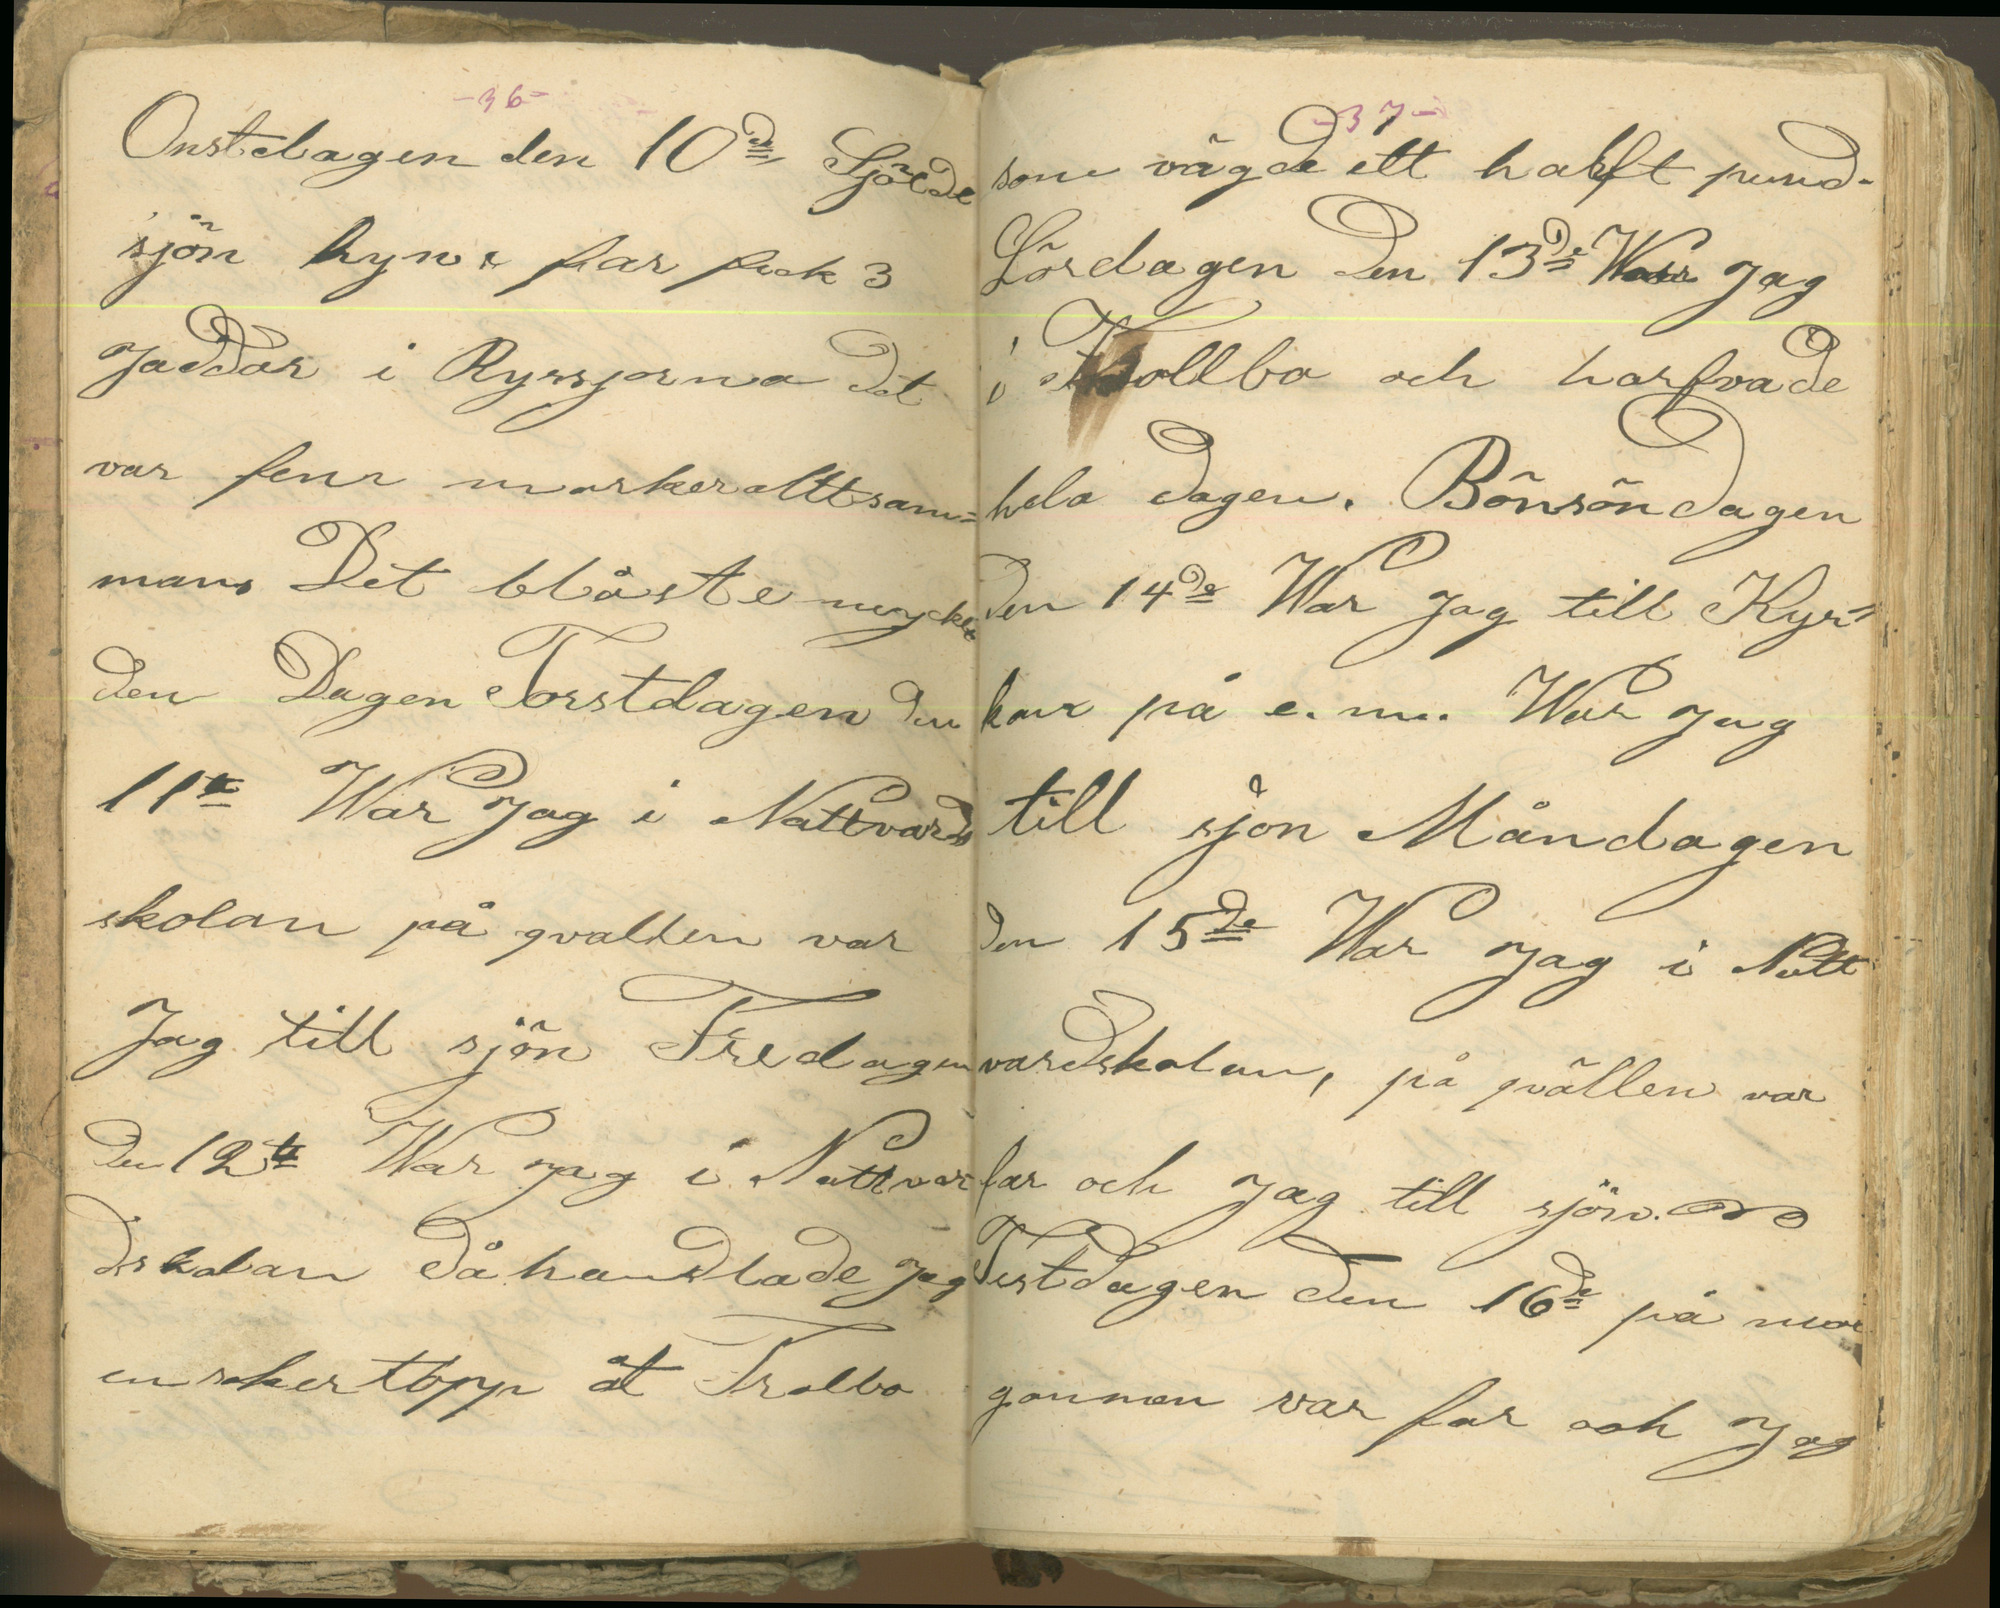 -36-
Onstdagen den 10de Sjölde
sjön hyns far fick 3
Jäddor i Ryssjorna det
var fem marker alltsam=
mans Det blåste mycket
den Dagen Torstdagen den
11te War Jag i Nattvards
skolan på qvallen var
Jag till sjön Fredagen
den 12te War Jag i Nattvar
dskolan då handlade Jag
en sokertopp åt Trolbo
-37-
som vägde ett halft pund.
Lördagen den 13de War Jag
i Trollbo och harfvade
hela dagen. Bönsöndagen
den 14de War Jag till Kyr=
kan på e.m. War Jag
till sjön Måndagen
den 15de War Jag i Natt
vardskolan, på qvällen var
far och Jag till sjön.
Tistdagen den 16de på mor
gonnen var far och Jag